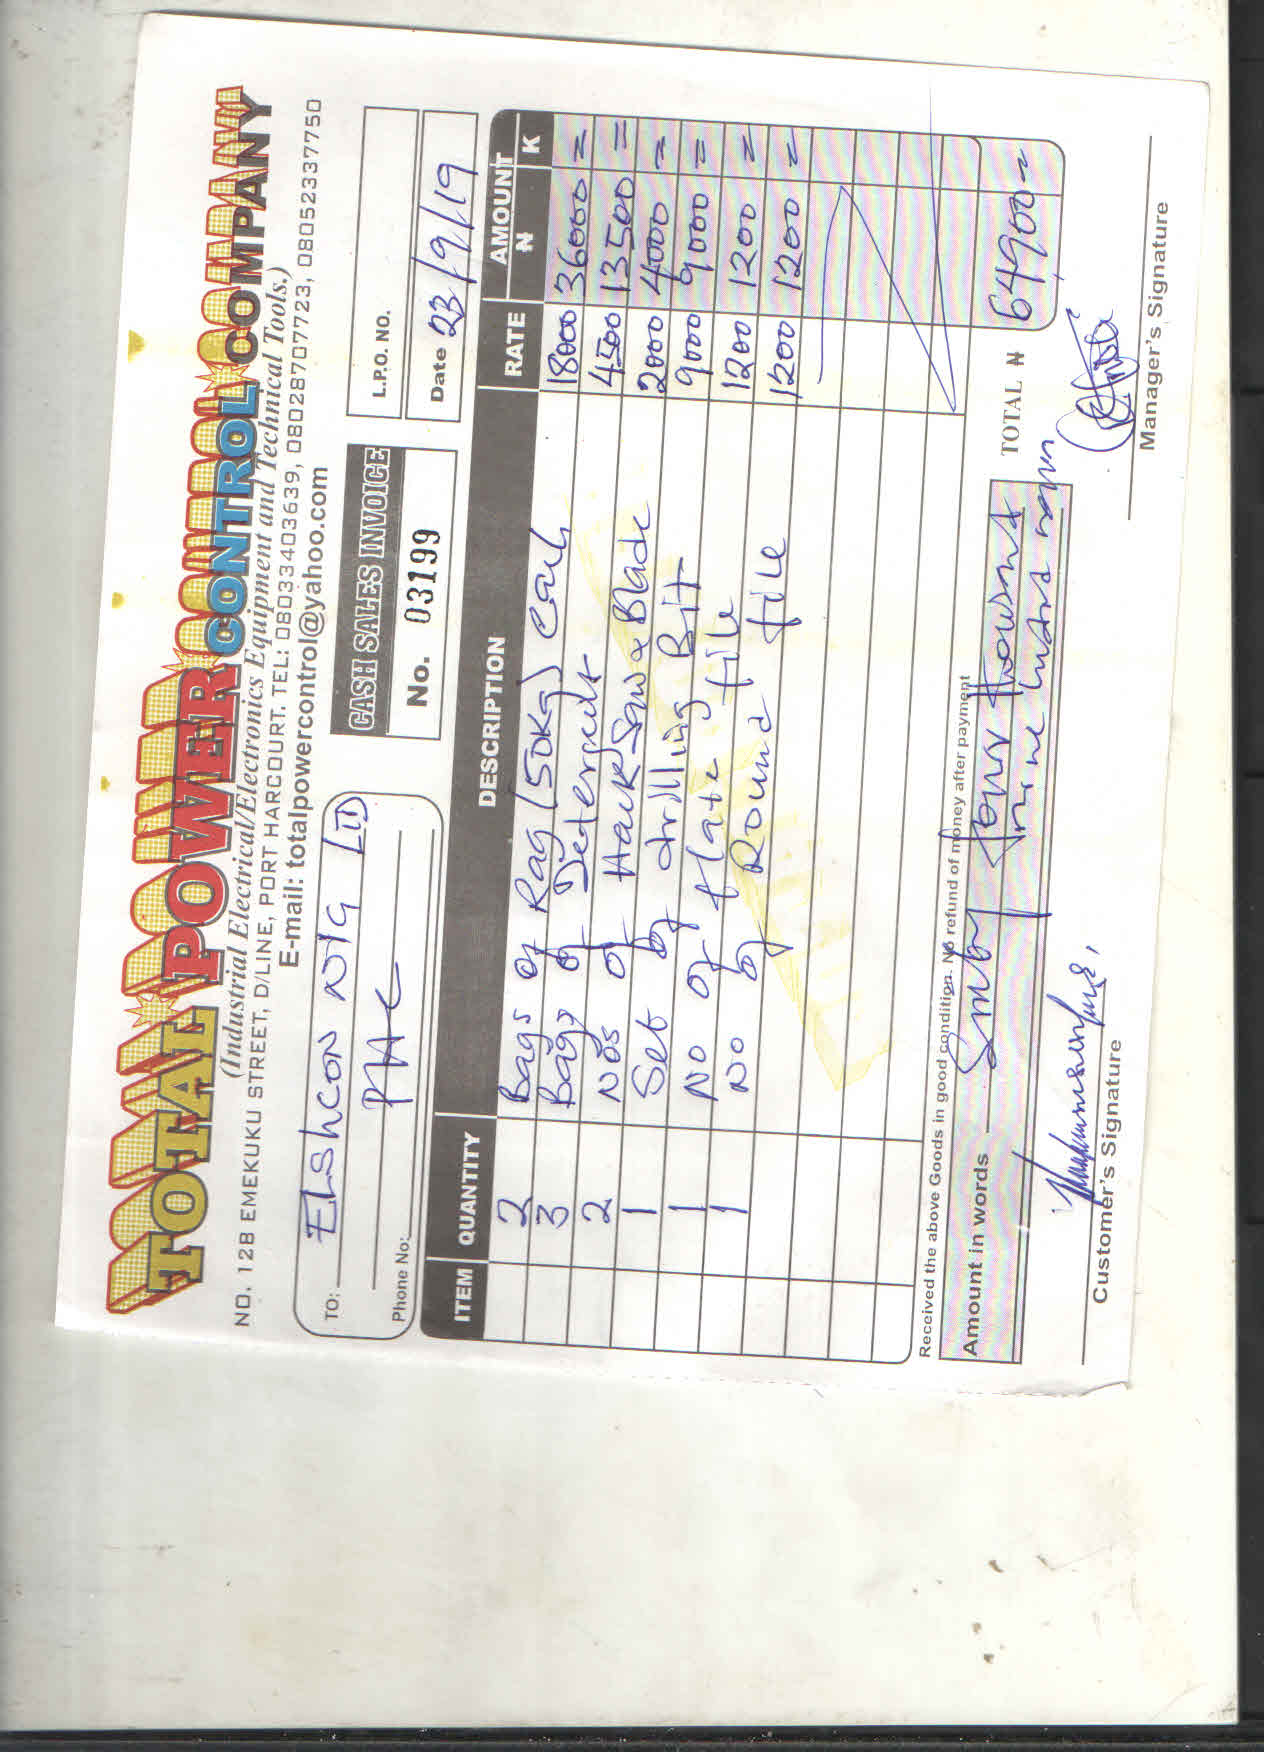 TOTAL POWER CONTROL COMPANY
(Industrial Electrical/Electronics Equipment and Technical Tools.)
NO. 12B EMEKUKU STREET, D/LINE, PORT HARCOURT. TEL: 08033403639, 08028707723, 08052337750
E-mail: totalpowercontrol@yahoo.com
TO: ELSHCON NIG LTD
PHC
Phone No:
CASH SALES INVOICE
No. 03199
L.P.O. NO.
Date 23/9/19
ITEM QUANTITY DESCRIPTION RATE AMOUNT
₦ K
2 Bags of Rag (50Kg) Each 18000 36000 =
3 Bags of Detergent 4500 13500 =
2 Nos of HackSaw Blade 2000 4000 =
1 Set of drilling Bit 9000 9000 =
1 No of flate file 1200 1200 =
1 No of Round file 1200 1200 =
Received the above Goods in good condition. No refund of money after payment
TOTAL ₦ 64900=
Amount in words Sixty four thousand
nine hundred naira
Customer's Signature
Manager's Signature